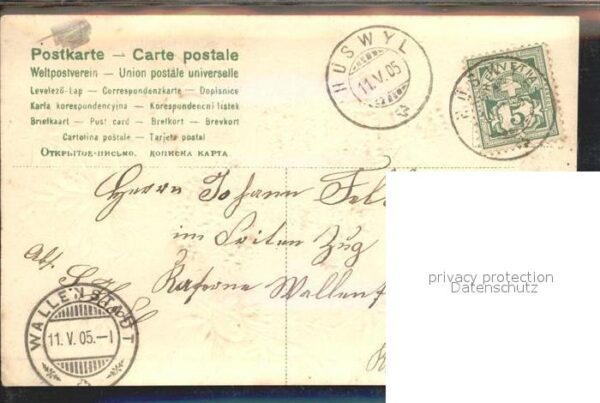 Postkarte — Carte postale
Weltpostverein — Union postale universelle
Levelező-Lap — Correspondenzkarte — Dopisnice
Karta korespondencyjna — Korespondenční lístek
Briefkaart — Post card — Brefkort — Brevkort
Cartolina postale — Tarjeta postal
Открытое-письмо. дописна карта
HÜSWYL
11.V.05
HELVETIA
5
Herrn Johann
im Zug
Kaserne Wallens
Abs.
WALLENSTADT
11.V.05.—I
privacy protection
Datenschutz